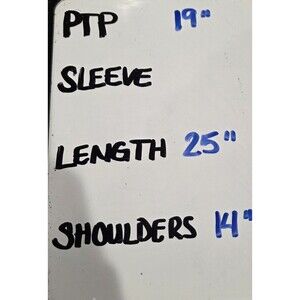 PTP 19"
SLEEVE
LENGTH 25"
SHOULDERS 14"